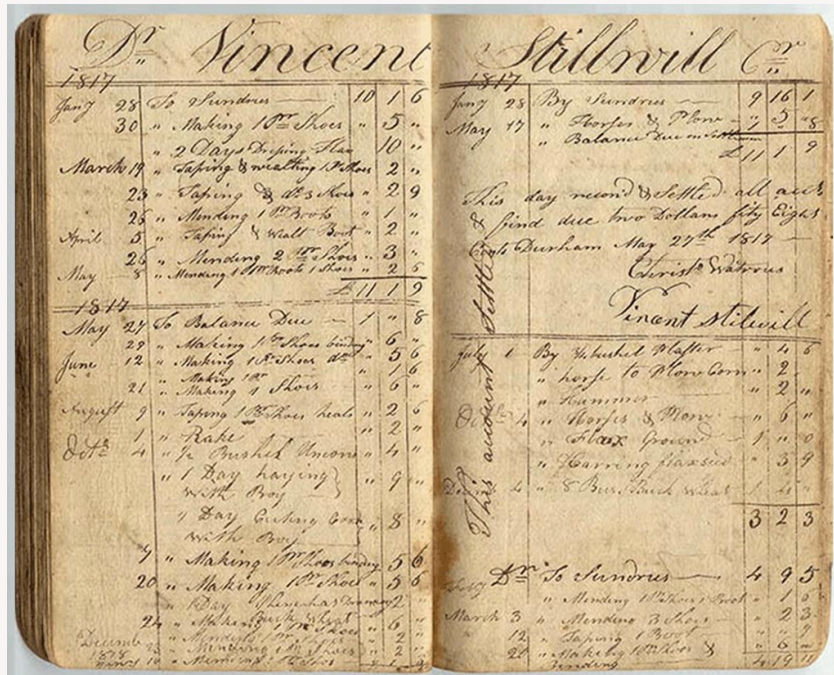 Dr Vincent
1817
Jany 28 To Sundries 10 1 6
30 " Making 1 Pr Shoes " 5 "
" 2 Days Flax 10 "
March 19 " Taping & wealting 1 Pr Shoes 2 "
23 " Taping & do 3 Shoes " 2 9
26 " Mending 1 Pr Boots " 1 "
April 5 " Taping & wealt Boot " 2 "
26 " Mending 2 Pr Shoes " 3 "
May 8 " Mending 1 Pr Boots 1 Shoes " 2 6
£ 11 1 9
1817
May 27 To Balance Due 1 " 8
29 " Making 1 Pr Shoes binding " 6 "
June 12 " Making 1 Pr Shoes do " 5 6
" Making 1 Pr " 1 6
21 " Making 1 Shoes " 6 "
August 9 " Taping 1 Pr Shoes heals " 2 6
1 " Rake " 2 "
Octr 4 " ½ Bushel " 4 "
" 1 Day haying
With Boy " 9 "
" 1 Day Cuting
With Boy " 8 "
7 " Making 1 Pr Shoes binding 5 6
20 " Making 1 Pr Shoes " 5 6
" 1 Day 2 "
Buck Wheat
24 " Making 1 Pr Shoes " 6 "
Decembr " Mending 1 Pr Shoes " 2
" Mending 1 Pr Shoes " 2
1818
10 " Mending 1 Pr Shoes
Stillwill Cr
1817
Jany 28 By Sundries 9 16 1
May 17 " Horses & Plow " 5 "
" Balance Due 1 " 8
£ 11 1 9
This day recond & Settled all
& find due two Dollars fity Eight
Cents Durham May 27th 1817
Christr Watrous
Vincent Stilwill
This account Settled
July 1 By bushel Plaster " 4 6
" horse to Plow Corn " 2 "
" Hammer " 2 "
Octbr 4 " Horses & Plow " 6 "
" Flax Ground 1 " 0
" flaxsed " 3 9
4 " 8 Bus. Buck wheat 1 4 "
3 2 3
Dr To Sundries 4 9 5
" Mending 1 Pr Shoes 1 Boot " 1 6
March 3 " Mending 3 Shoes " 2 3
12 " Taping 1 Boot
20 " Making 1 Pr Shoes & " 6 "
Binding 4 19 11